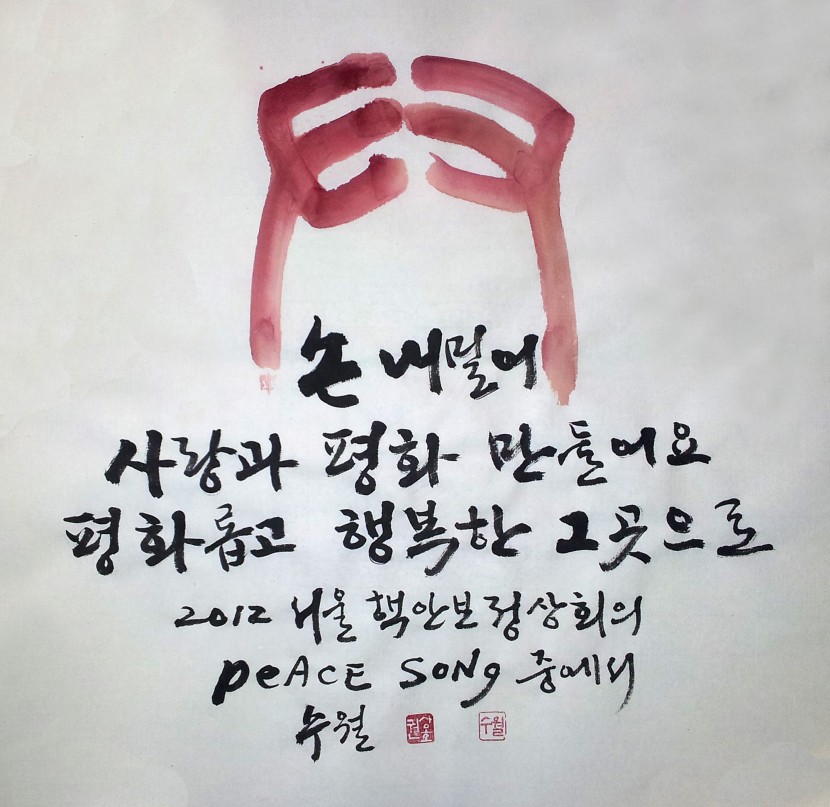 손 내밀어
사랑과 평화 만들어요
평화롭고 행복한 그곳으로
2012 서울 핵안보정상회의
PEACE SONg 중에서
수월
수월